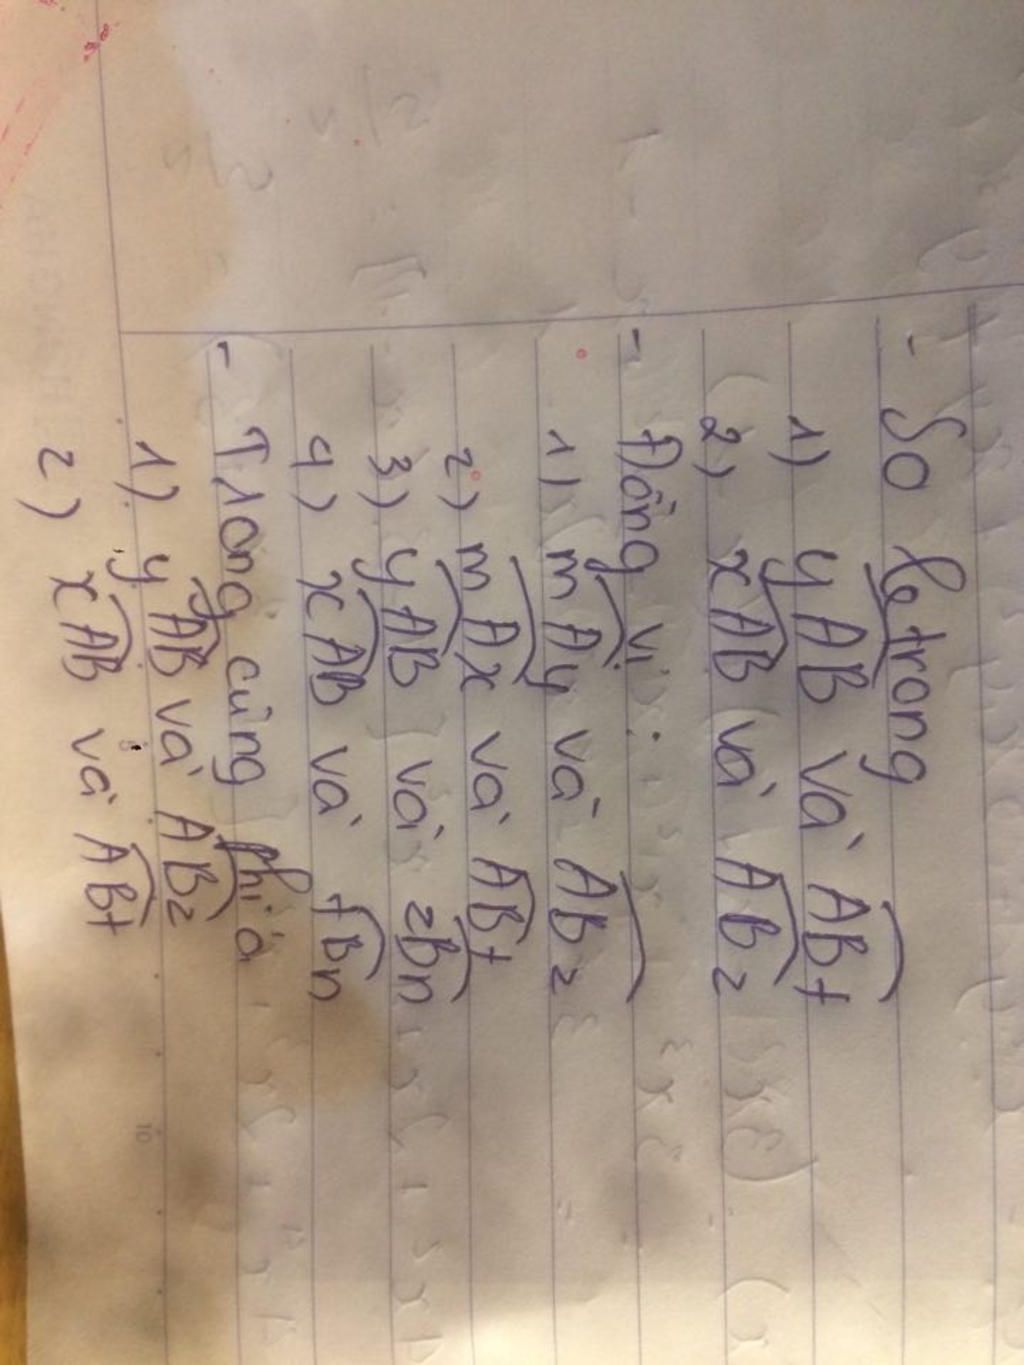 - So le trong
1) yAB và ABt
2) xAB và ABz
- Đồng vị:
1) mAy và ABz
2) mAx và ABt
3) yAB và zBn
4) xAB và tBn
- Trong cùng phía
1) yAB và ABz
2) xAB và ABt